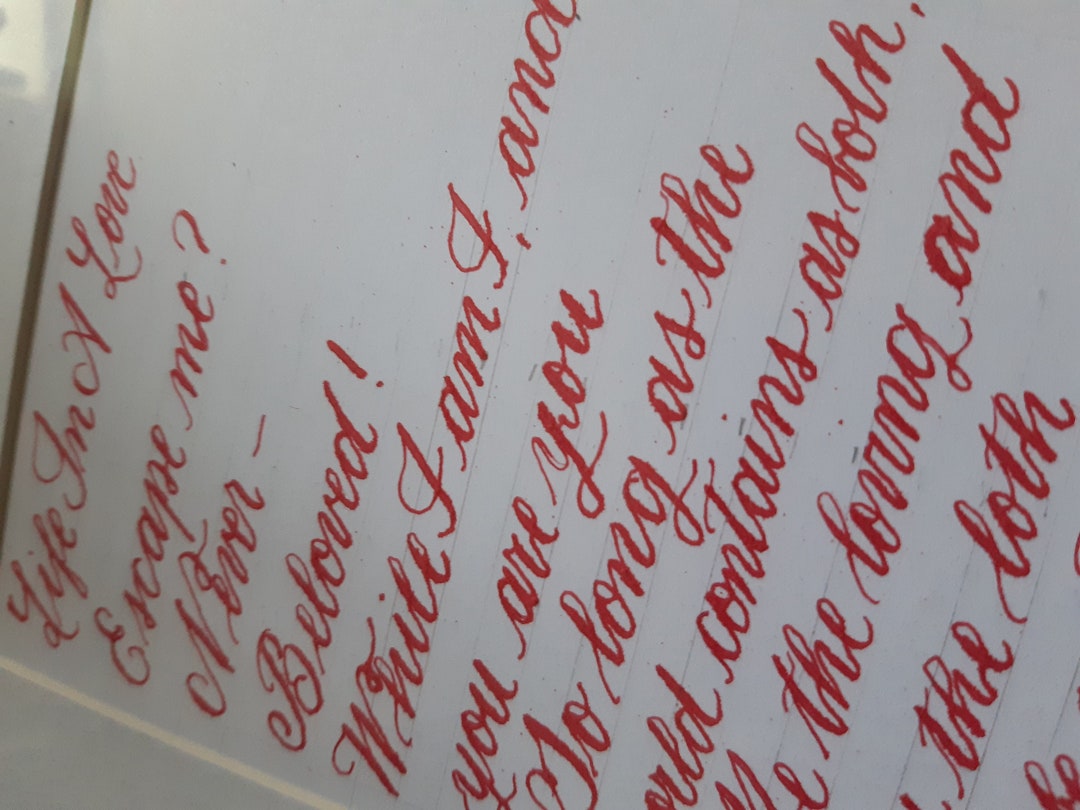 Life In A Love
Escape me?
Never –
Beloved!
While I am I, and
you are you
So long as the
world contains us both.
Me the loving and
the loth